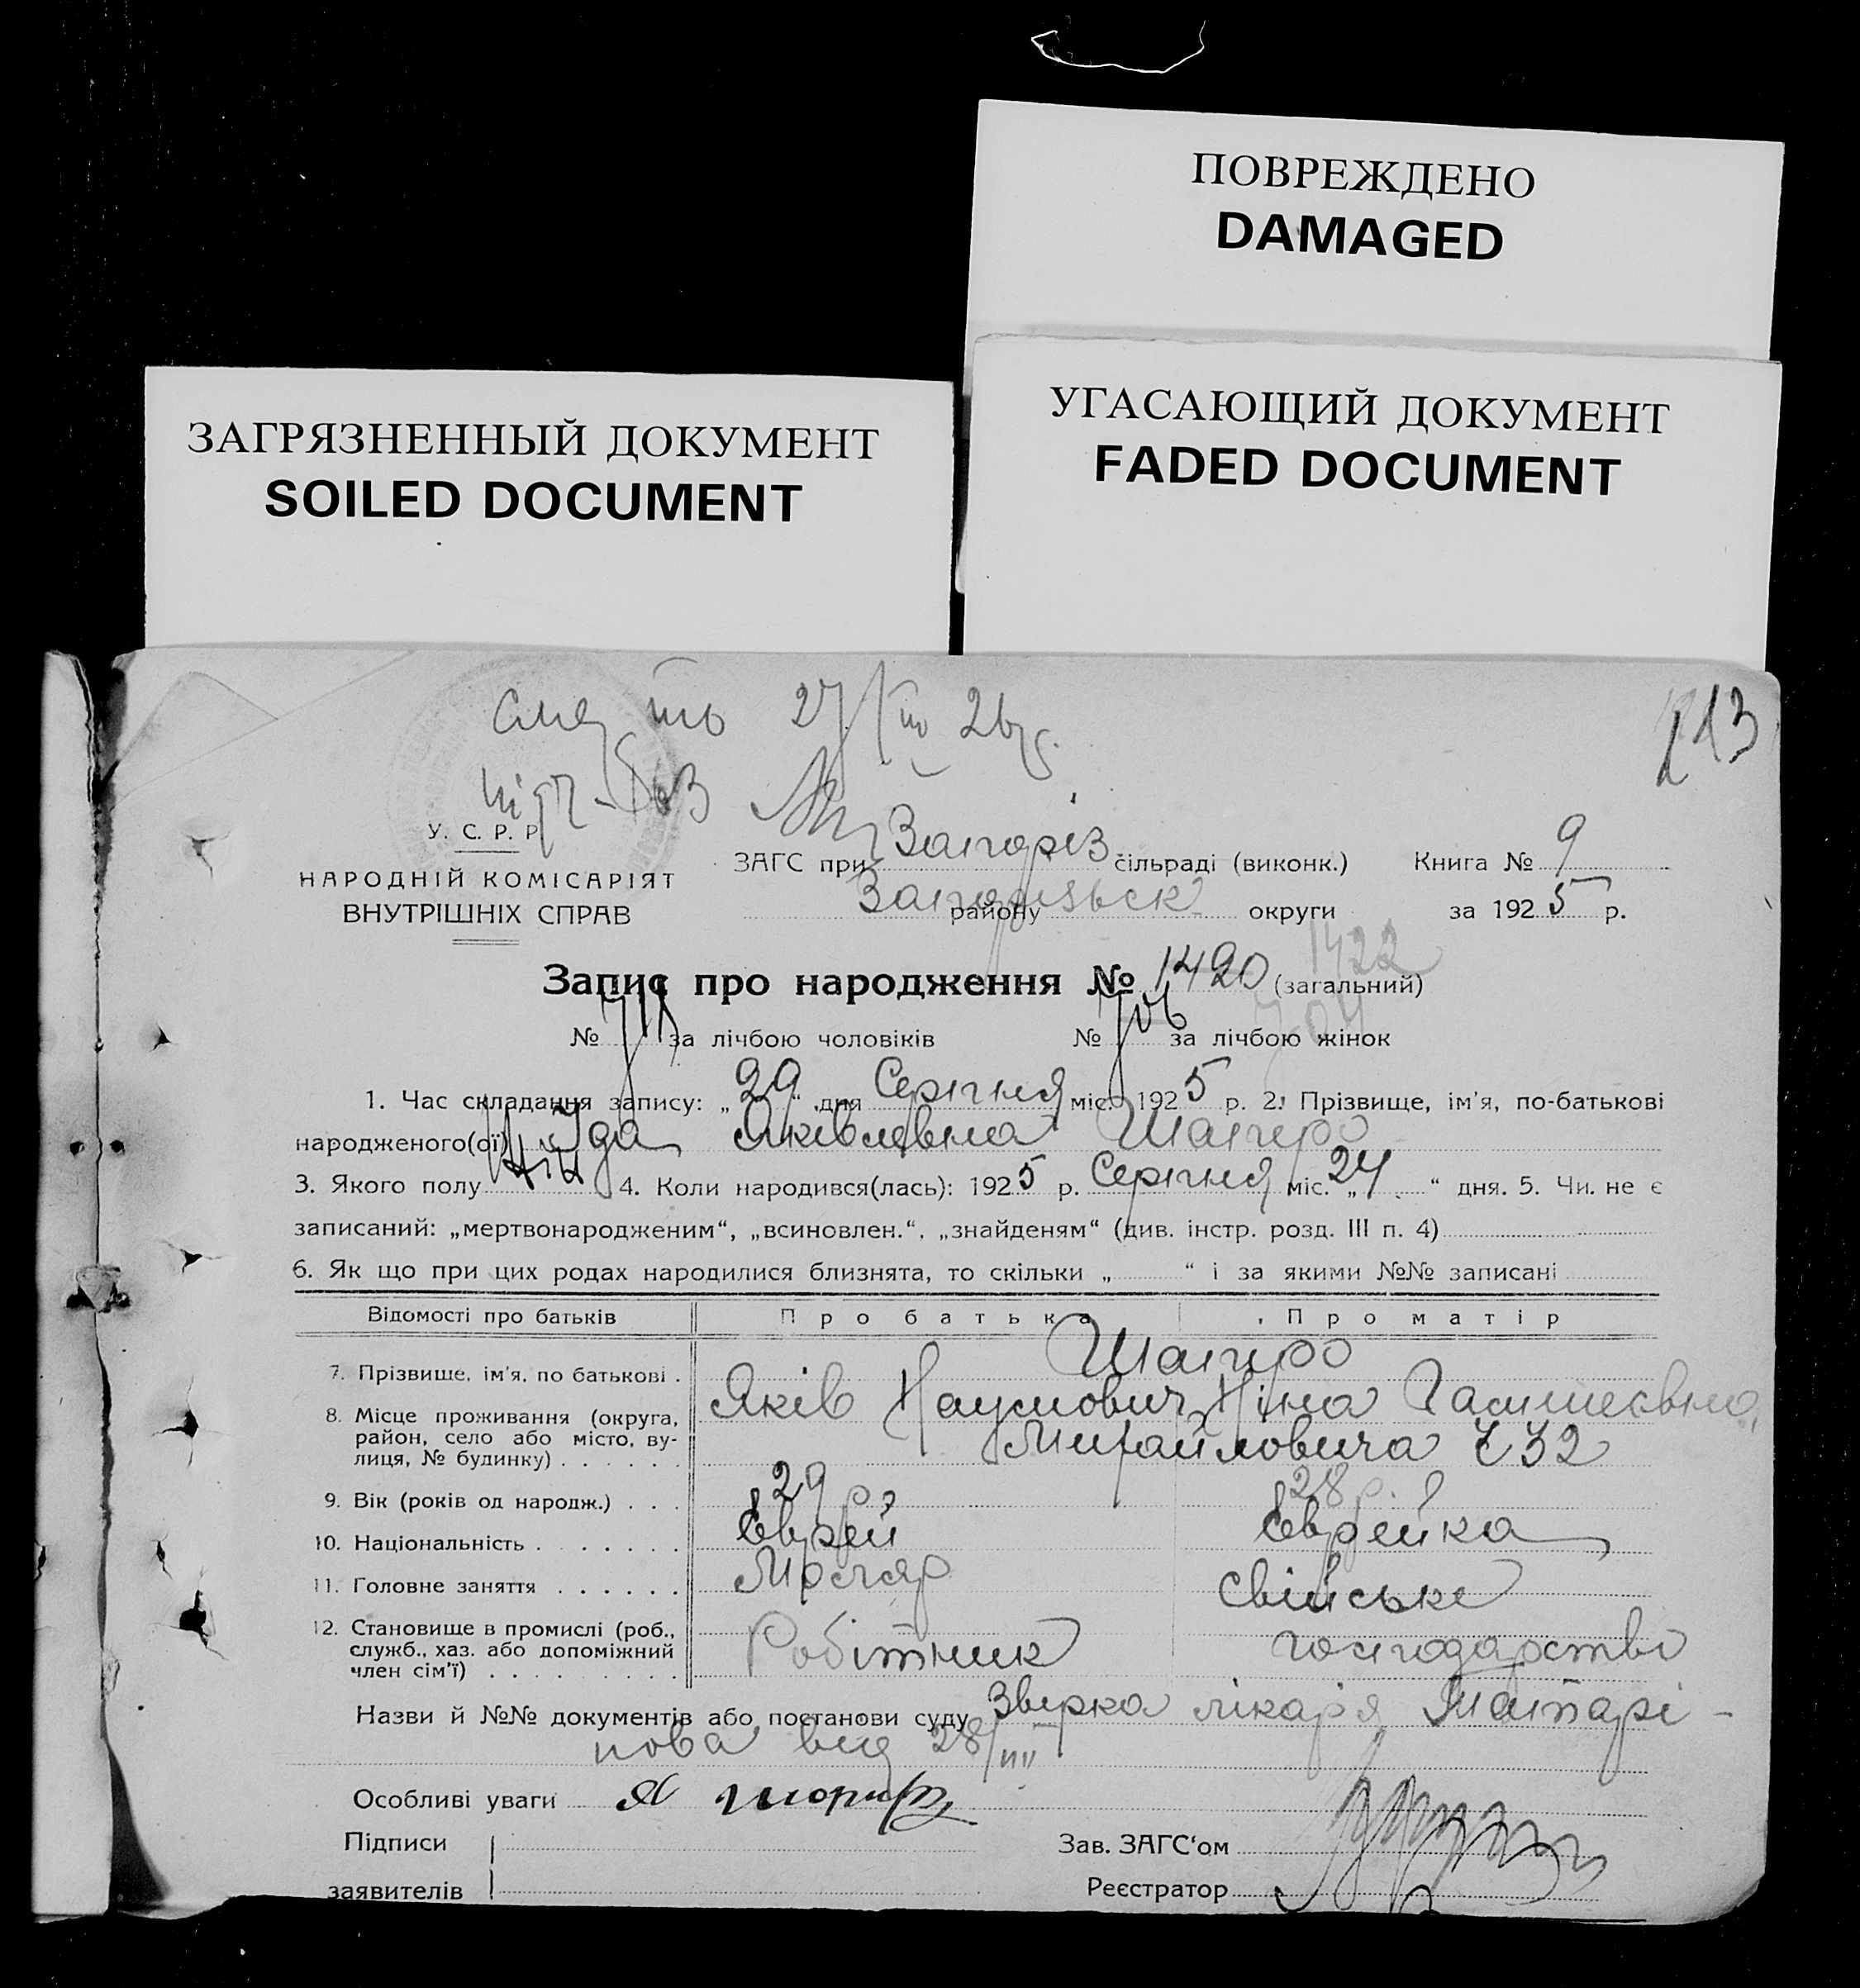 ПОВРЕЖДЕНО
DAMAGED
УГАСАЮЩИЙ ДОКУМЕНТ
FADED DOCUMENT
ЗАГРЯЗНЕННЫЙ ДОКУМЕНТ
SOILED DOCUMENT
213
У. С. Р. Р.
НАРОДНІЙ КОМІСАРІЯТ
ВНУТРІШНІХ СПРАВ
ЗАГС при Запоріз сільраді (виконк.) Книга № 9
району округи за 1925 р.
Запис про народження № 1420 (загальний) 1422
№ за лічбою чоловіків № 706 за лічбою жінок 704
1. Час складання запису: „29“ дня Серпня міс. 1925 р. 2. Прізвище, ім'я, по-батькові
народженого(ої) Іда Яківлевна Шапиро
3. Якого полу Жін 4. Коли народився(лась): 1925 р. Серпня міс. „24“ дня. 5. Чи не є
записаний: „мертвонародженим“, „всиновлен.“, „знайденям“ (див. інстр. розд. III п. 4)
6. Як що при цих родах народилися близнята, то скільки „ “ і за якими №№ записані
Відомості про батьків Про батька Про матір
7. Прізвище, ім'я, по батькові . Шапиро
Яків Наумович Ніна
8. Місце проживання (округа,
район, село або місто, ву-
лиця, № будинку) . . . . . . Михайловича 32
9. Вік (років од народж.) . . . 29 р. 28 р.
10. Національність . . . . . . . Єврей Єврейка
11. Головне заняття . . . . . . Маляр Свійське
12. Становище в промислі (роб.,
служб., хаз. або допоміжний
член сім'ї) . . . . . . . . . Робітник господарство
Назви й №№ документів або постанови суду лікаря
нова від 28/VIII
Особливі уваги
Підписи
заявителів
Зав. ЗАГС'ом
Реєстратор